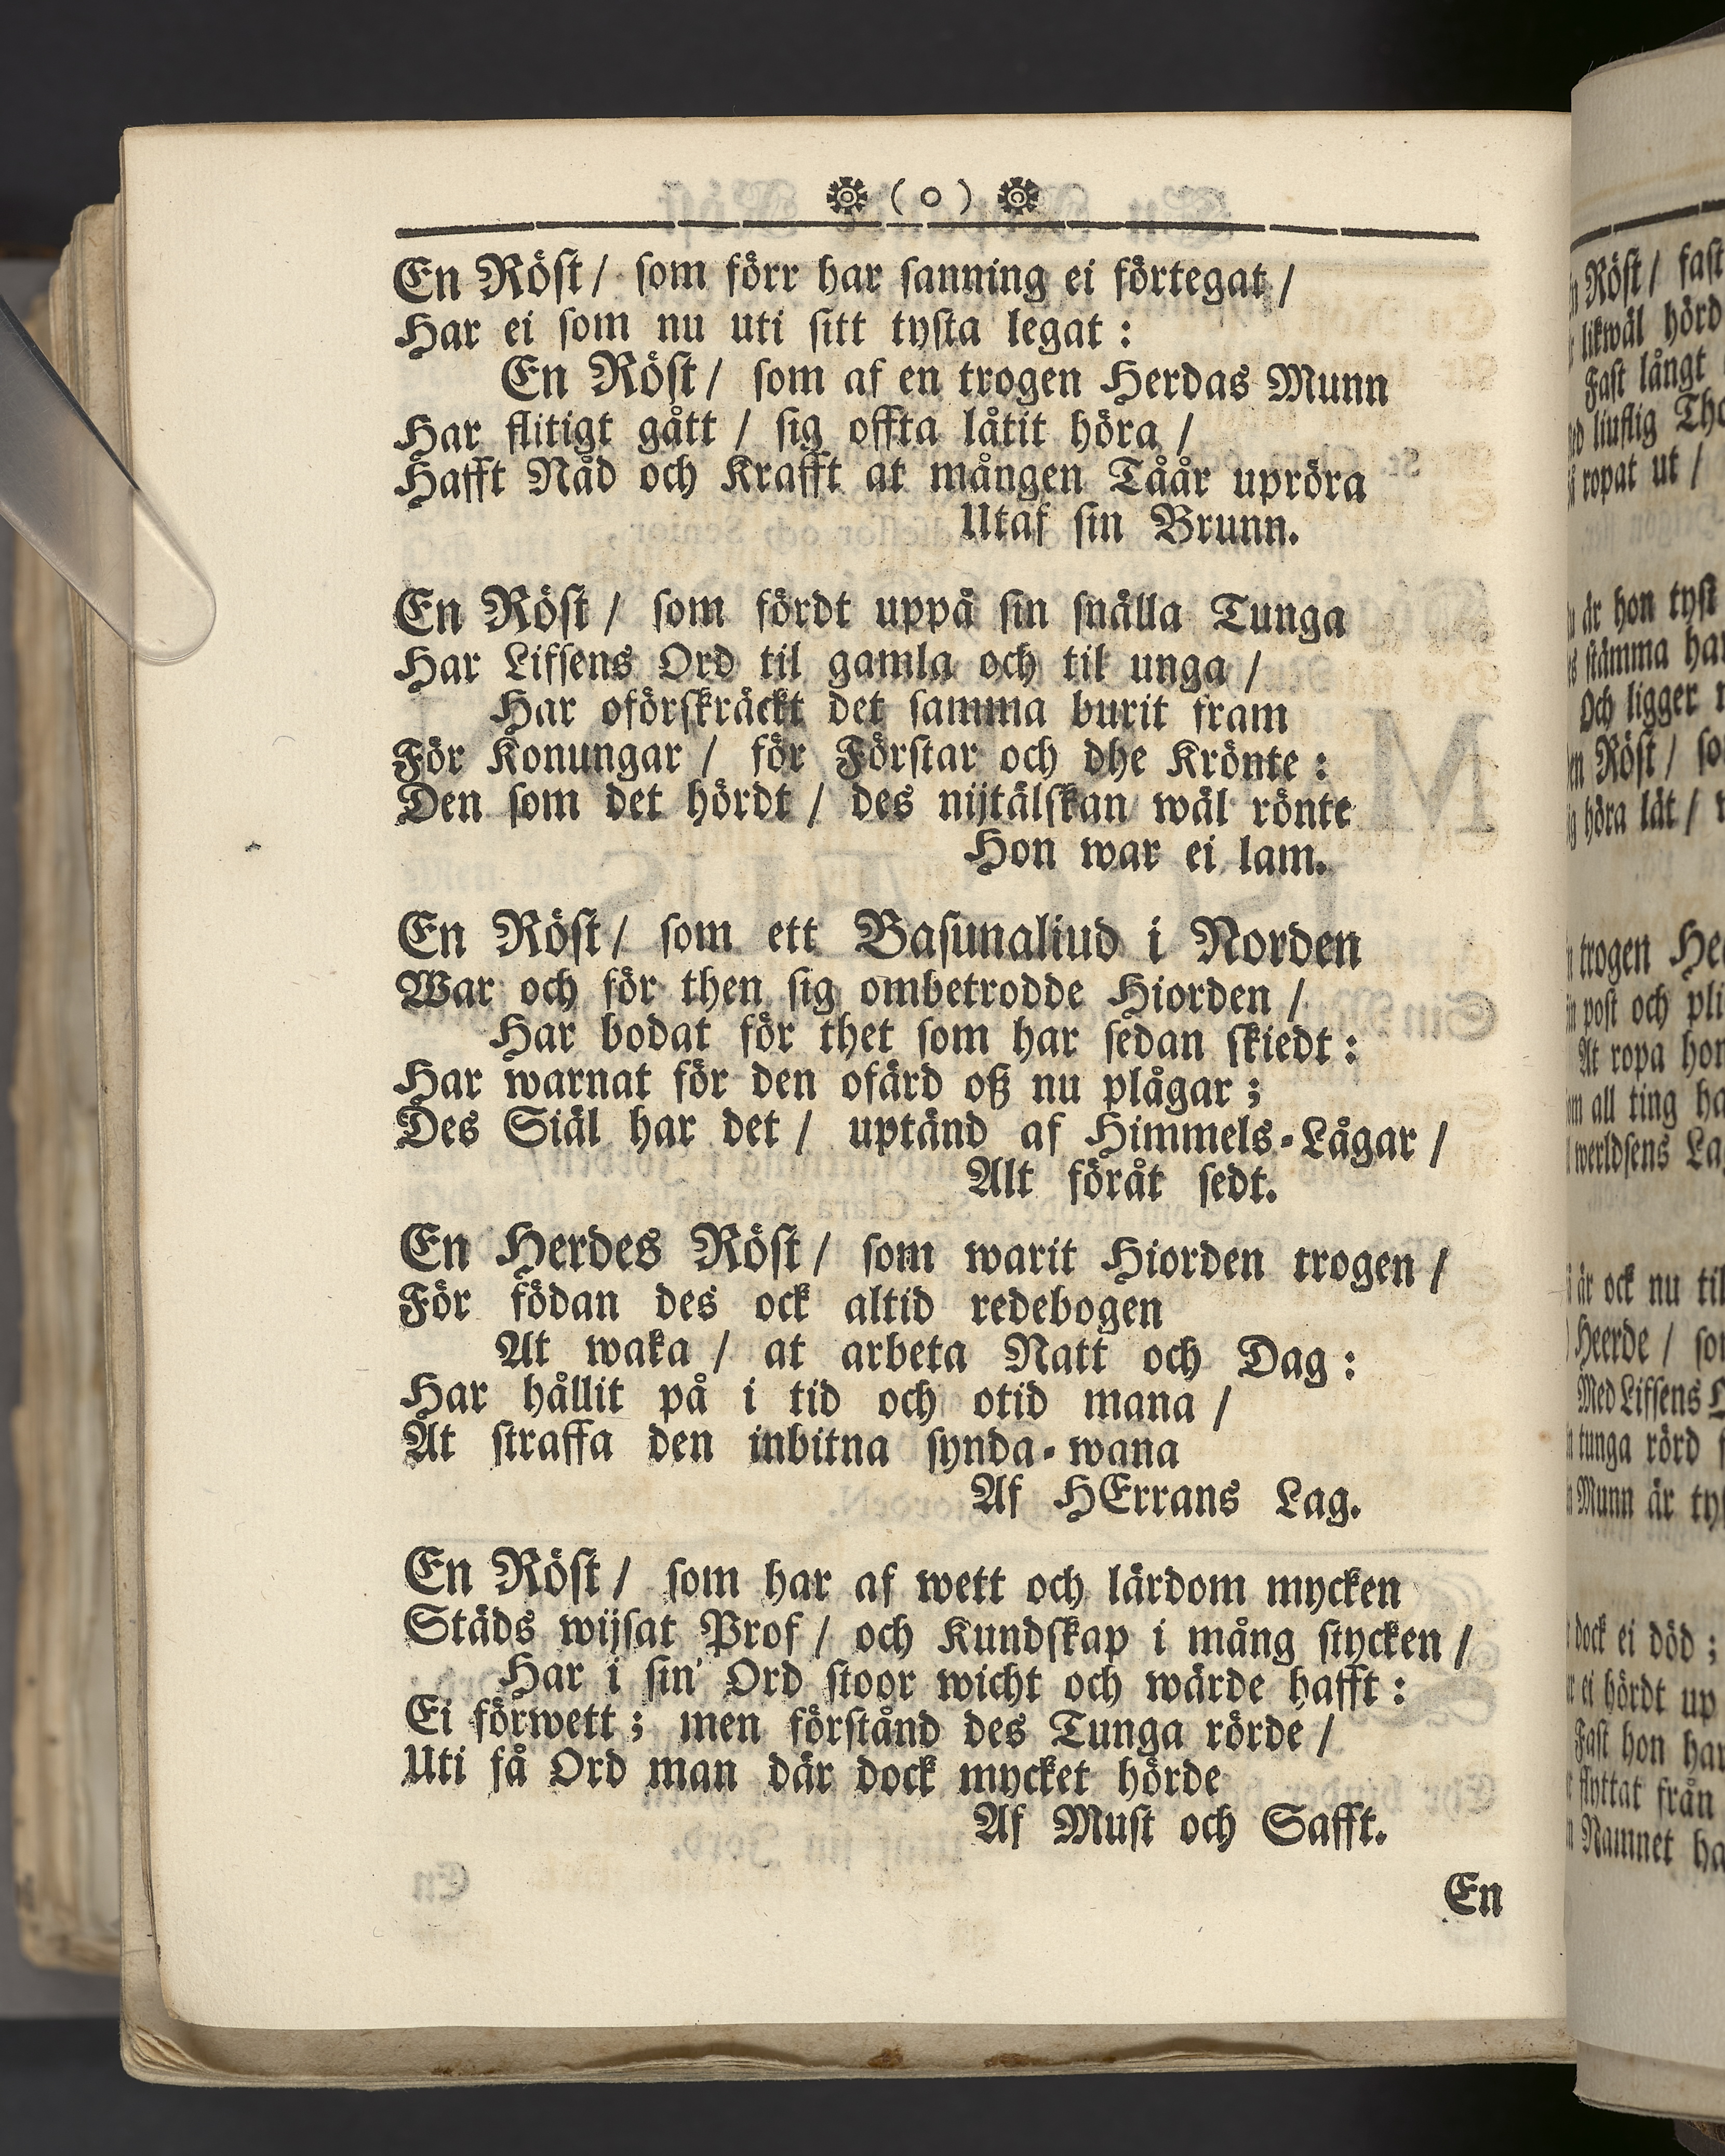 ( o )
En Röst / som förr har sanning ei förtegat /
Har ei som nu uti sitt tysta legat :
En Röst / som af en trogen Herdas Munn
Har flitigt gått / sig offta låtit höra /
Hafft Nåd och Krafft at mången Tåår upröra
Utaf sin Brunn.
En Röst / som fördt uppå sin snälla Tunga
Har Lifsens Ord til gamla och til unga /
Har oförskräckt det samma burit fram
För Konungar / för Förstar och dhe Krönte :
Den som det hördt / des nijtälskan wäl rönte
Hon war ei lam.
En Röst / som ett Basunaliud i Norden
War och för then sig ombetrodde Hiorden /
Har bodat för thet som har sedan skiedt :
Har warnat för den ofärd oß nu plågar ;
Des Siäl har det / uptänd af Himmels-Lågar /
Alt föråt sedt.
En Herdes Röst / som warit Hiorden trogen /
För födan des ock altid redebogen
At waka / at arbeta Natt och Dag :
Har hållit på i tid och otid mana /
At straffa den inbitna synda-wana
Af HErrans Lag.
En Röst / som har af wett och lärdom mycken
Städs wijsat Prof / och Kundskap i mång stycken /
Har i sin' Ord stoor wicht och wärde hafft :
Ei förwett ; men förstånd des Tunga rörde /
Uti få Ord man där dock mycket hörde
Af Must och Safft.
En
Röst / fast
likwäl hörd
Fast långt
liuflig
ropat ut /
är hon tyst
stämma har
Och ligger
Röst /
höra låt /
trogen
post och
At ropa hon
all ting
werldsens
är ock nu til
Heerde /
Med Lifsens
tunga rörd
Munn är
dock ei död ;
ei hördt up
Fast hon har
flyttat från
Namnet